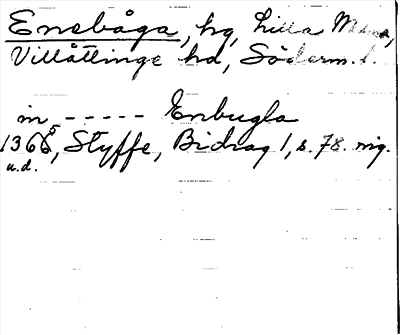 Enebåga, hg, Lilla Malma,
Villåttinge hd, Söderm. l.
in - - - - - Enbugla
1366, Styffe, Bidrag 1, s. 78. orig.
u.d.